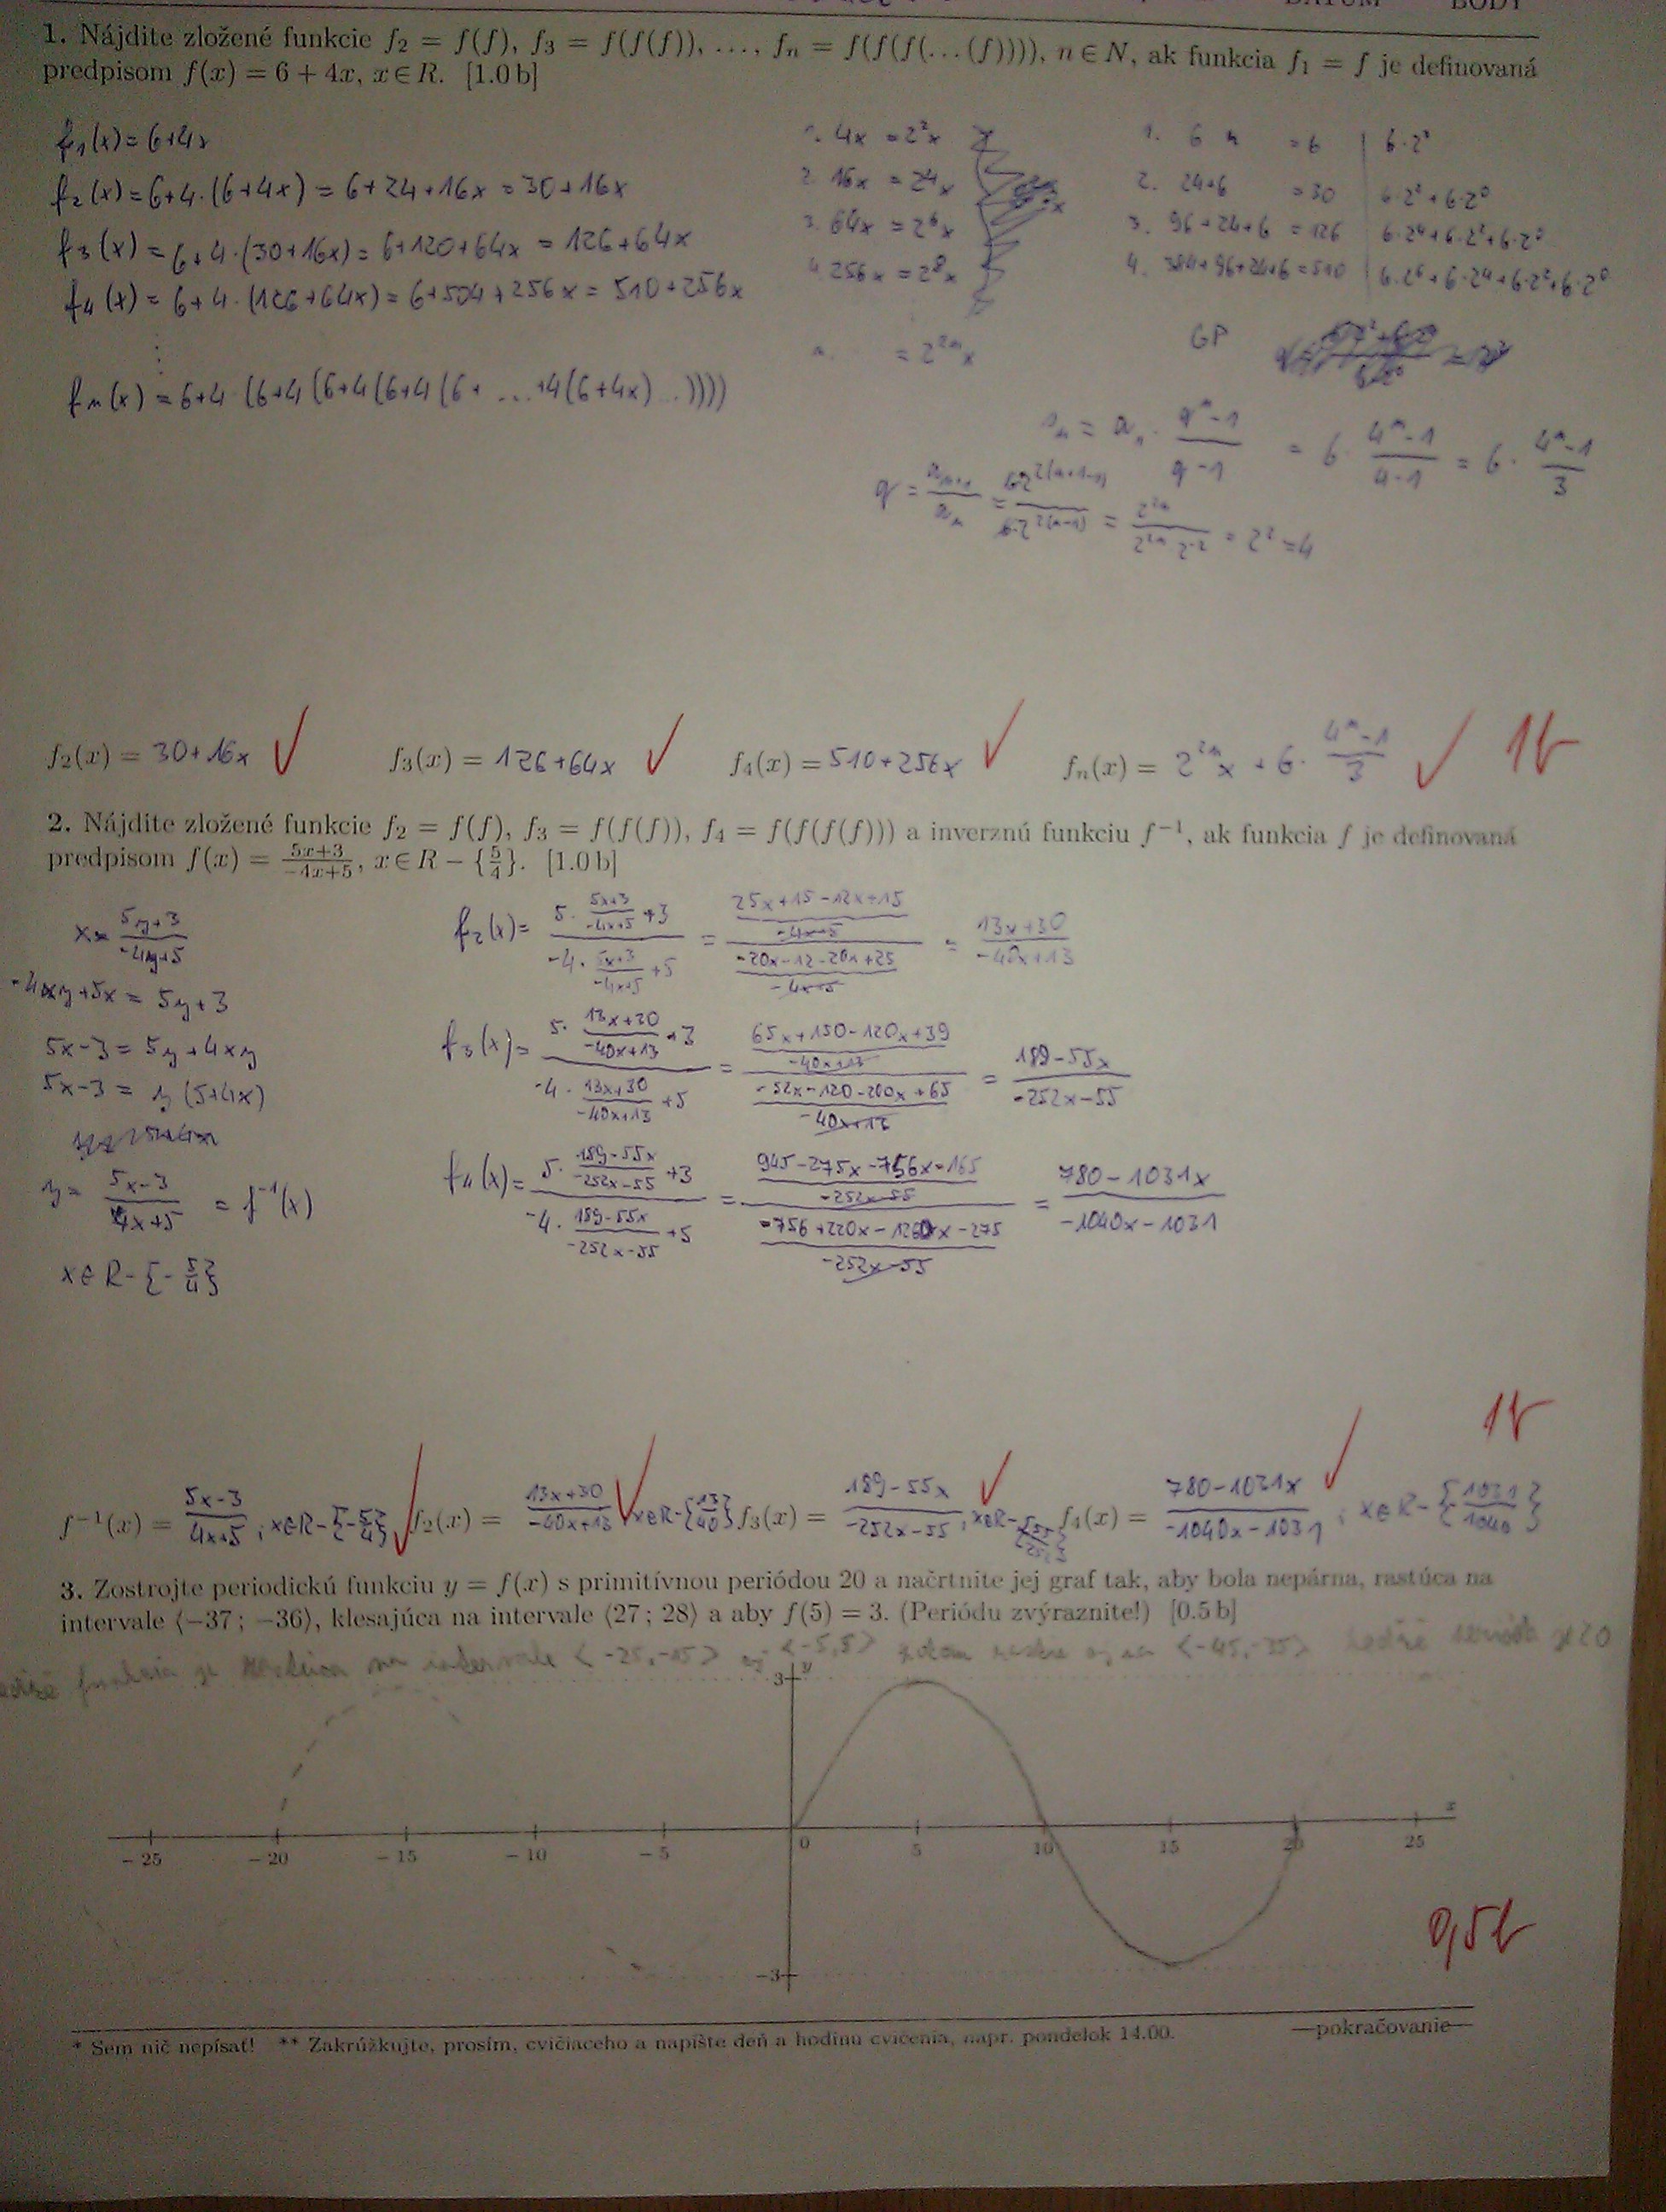 DÁTUM BODY
1. Nájdite zložené funkcie f₂ = f(f), f₃ = f(f(f)), ..., fₙ = f(f(f(...(f)))), n ∈ N, ak funkcia f₁ = f je definovaná
predpisom f(x) = 6 + 4x, x ∈ R. [1.0 b]
f₁(x) = 6+4x
f₂(x) = 6+4·(6+4x) = 6+24+16x = 30+16x
f₃(x) = 6+4·(30+16x) = 6+120+64x = 126+64x
f₄(x) = 6+4·(126+64x) = 6+504+256x = 510+256x
⋮
fₙ(x) = 6+4·(6+4(6+4(6+4(6+ ...+4(6+4x)..))))
1. 4x = 2²x
2. 16x = 2⁴x
3. 64x = 2⁶x
4. 256x = 2⁸x
n. = 2²ⁿx
1. 6 = 6 | 6·2⁰
2. 24+6 = 30 | 6·2²+6·2⁰
3. 96+24+6 = 126 | 6·2⁴+6·2²+6·2⁰
4. 384+96+24+6 = 510 | 6·2⁶+6·2⁴+6·2²+6·2⁰
GP
sₙ = a₁·(qⁿ-1)/(q-1) = 6·(4ⁿ-1)/(4-1) = 6·(4ⁿ-1)/3
q = aₙ₊₁/aₙ = 6·2^(2(n+1-1))/6·2^(2(n-1)) = 2²ⁿ/(2²ⁿ·2⁻²) = 2² = 4
f₂(x) = 30+16x ✓ f₃(x) = 126+64x ✓ f₄(x) = 510+256x ✓ fₙ(x) = 2²ⁿx + 6·(4ⁿ-1)/3 ✓ 1b
2. Nájdite zložené funkcie f₂ = f(f), f₃ = f(f(f)), f₄ = f(f(f(f))) a inverznú funkciu f⁻¹, ak funkcia f je definovaná
predpisom f(x) = (5x+3)/(-4x+5), x ∈ R − {5/4}. [1.0 b]
x = (5y+3)/(-4y+5)
-4xy+5x = 5y+3
5x-3 = 5y+4xy
5x-3 = y(5+4x)
y = (5x-3)/(4x+5) = f⁻¹(x)
x ∈ R-{-5/4}
f₂(x) = (5·(5x+3)/(-4x+5)+3)/(-4·(5x+3)/(-4x+5)+5) = ((25x+15-12x+15)/(-4x+5))/((-20x-12-20x+25)/(-4x+5)) = (13x+30)/(-40x+13)
f₃(x) = (5·(13x+30)/(-40x+13)+3)/(-4·(13x+30)/(-40x+13)+5) = ((65x+150-120x+39)/(-40x+13))/((-52x-120-200x+65)/(-40x+13)) = (189-55x)/(-252x-55)
f₄(x) = (5·(189-55x)/(-252x-55)+3)/(-4·(189-55x)/(-252x-55)+5) = ((945-275x-756x-165)/(-252x-55))/((-756+220x-1260x-275)/(-252x-55)) = (780-1031x)/(-1040x-1031)
1b
f⁻¹(x) = (5x-3)/(4x+5); x∈R-{-5/4} ✓ f₂(x) = (13x+30)/(-40x+13) ✓ x∈R-{13/40} f₃(x) = (189-55x)/(-252x-55) ✓; x∈R- f₄(x) = (780-1031x)/(-1040x-1031) ✓; x∈R-{-1031/1040}
3. Zostrojte periodickú funkciu y = f(x) s primitívnou periódou 20 a načrtnite jej graf tak, aby bola nepárna, rastúca na
intervale ⟨−37 ; −36⟩, klesajúca na intervale ⟨27 ; 28⟩ a aby f(5) = 3. (Periódu zvýraznite!) [0.5 b]
funkcia je na intervale <-25,-15> aj <-5,5> potom rastie aj na <-45,-35> keďže perióda je 20
3 y
x
−25 −20 −15 −10 −5 0 5 10 15 20 25
−3
0,5b
* Sem nič nepísať! ** Zakrúžkujte, prosím, cvičiaceho a napíšte deň a hodinu cvičenia, napr. pondelok 14.00. —pokračovanie—